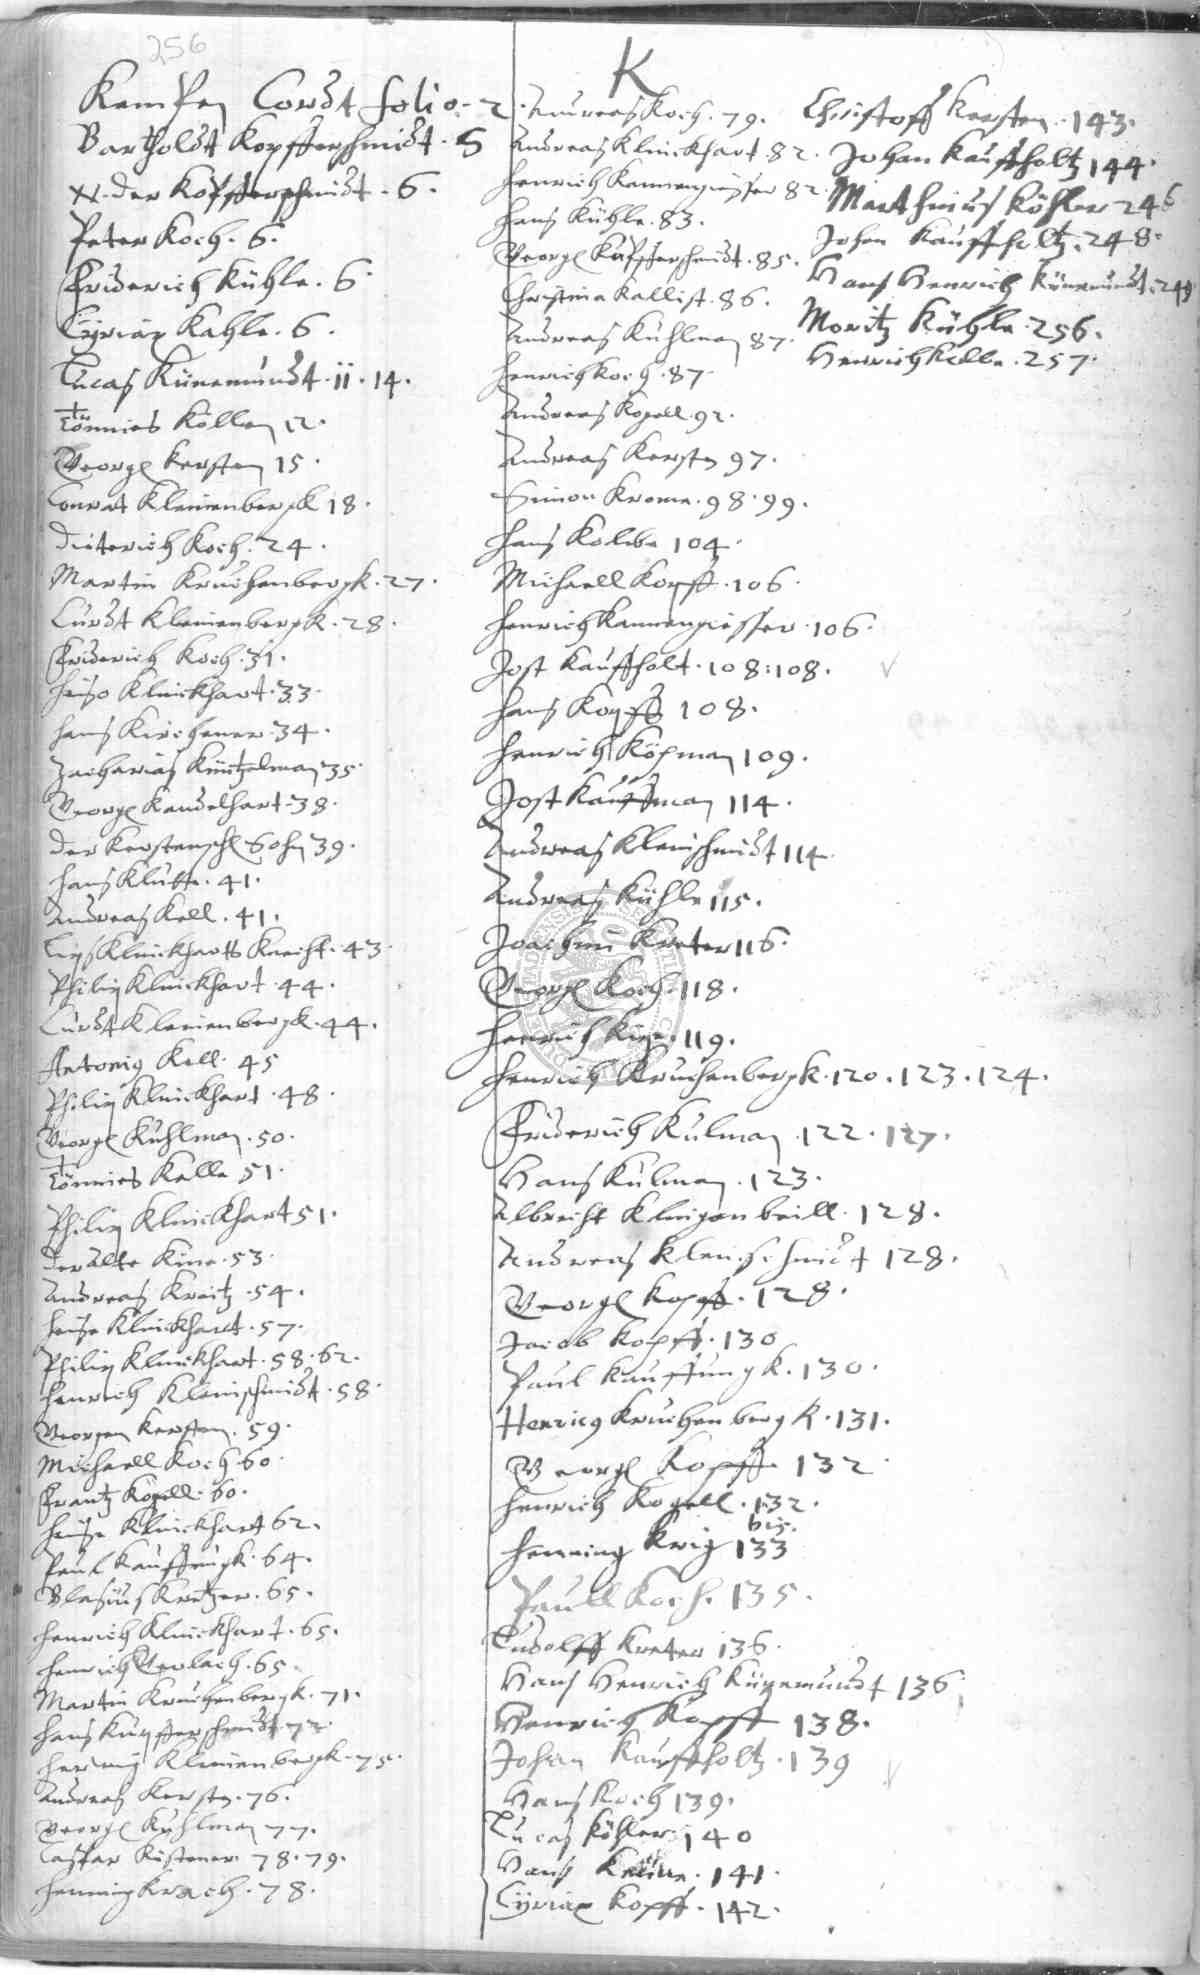 256
K
Kempen Cordt folio. 2
Bartholdt Kopfferschmidt. 5
N. der Kopfferschmidt. 6.
Peter Koch. 6.
Friderich Kühle. 6
Cyriax Kahle. 6.
Lucas Künemundt. ii. 14.
Tönnies Köllen 12.
Georgl Kersten 15.
Conrat Kleinenbergk 18.
Dieterich Koch. 24.
Martin Kruchenbergk. 27.
Curdt Kleinenbergk. 28.
Friderich Koch. 31.
Heiso Klinckhart. 33.
Hans Kirchener. 34.
Zacharias Küntzelman 35.
Georgl Kandelhart. 38.
der Kerstensch Sohn 39.
Hans Klutte. 41.
Andreas Kell. 41.
Klinckharts Knecht. 43.
Philip Klinckhart. 44.
Curdt Kleinenbergk. 44.
Antonig Kell. 45
Philip Klinckhart. 48.
Georgl Kuhlman. 50.
Tönnies Kelle 51.
Philip Klinckhart 51.
der alte Kine. 53.
Andreas Kreitz. 54.
Heise Klinckhart. 57.
Philip Klinckhart. 58. 62.
Henrich Kleinschmidt. 58.
Georgen Kersten. 59.
Michaell Koch 60.
Frantz Kogell. 60.
Heise Klinckhart 62.
Paul Kauffungk. 64.
Blasius Kretzer. 65.
Henrich Klinckhart. 65.
Henrich Gerlach. 65.
Martin Kruchenbergk. 71.
Hans Kupfferschmidt. 73.
Kleinenbergk. 75.
Andreas Kersten. 76.
Georgl Kuhlman 77.
Caspar Kistener. 78. 79.
Henning Krach. 78.
Andreas Koch. 79.
Andreas Klinckhart. 82.
Henrich Kannengiesser 82.
Hans Kühle. 83.
Georgl Kupfferschmidt. 85.
Christina Kallist. 86.
Andreas Kuhlman 87.
Henrich Koch. 87.
Andreas Kogell. 92.
Andreas Kersten 97.
Simon Krome. 98. 99.
Hans Kolbe 104.
Michaell Kopff. 106.
Henrich Kannengiesser. 106.
Jost Kauffholt. 108: 108.
Hans Kopff 108.
Henrich Köpman 109.
Jost Kauffman 114.
Andreas Kleinschmidt 114.
Andreas Kühle 115.
Joachim Kreter 116.
Georgl Koch. 118.
Henrich 119.
Henrich Kruchenbergk. 120. 123. 124.
Friderich Kulman. 122. 127.
Hans Kulman. 123.
Albrecht Klingenbeill. 128.
Andreas Kleinschmidt 128.
Georgl Kopff. 128.
Jacob Kopff. 130
Paul Kauffungk. 130.
Henricg Kruchenbergk. 131.
Georgl Kopff. 132
Henrich Kogell. 132.
bis.
Henning Krig 133
Paull Koch. 135.
Ludolff Kreter 136.
Hans Henrich Künemundt 136
Henrich Kopff 138.
Johan Kauffholtz. 139
Hans Koch 139.
Lucas Köhler 140
Hans 141.
Cyriax Kopff. 142.
Christoff Kersten. 143.
Johan Kauffholtz 144.
Matthius Köhler 246
Johan Kauffholtz. 248.
Hans Henrich Künemundt. 249
Moritz Kühle. 256.
Henrich Kelle. 257.